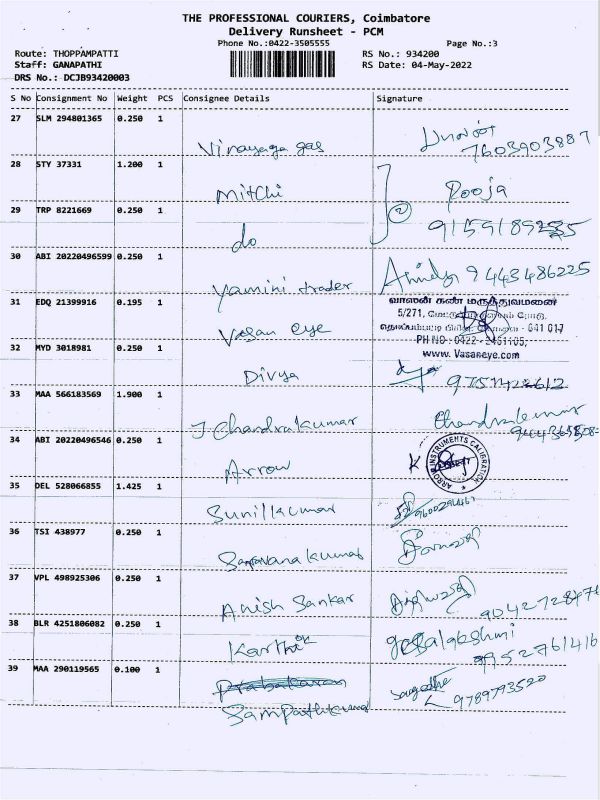 THE PROFESSIONAL COURIERS, Coimbatore
Delivery Runsheet - PCM
Phone No.:0422-3505555 Page No.:3
Route: THOPPAMPATTI RS No.: 934200
Staff: GANAPATHI RS Date: 04-May-2022
DRS No.: DCJB93420003
S No Consignment No Weight PCS Consignee Details Signature
27 SLM 294801365 0.250 1
Vinayaga gas 7603903887
28 STY 37331 1.200 1
Mitchi Pooja
29 TRP 8221669 0.250 1
do
30 ABI 20220496599 0.250 1
Yamini trader 9443486225
31 EDQ 21399916 0.195 1
வாஸன் கண் மருத்துவமனை
5/271,
Vasan eye
641 017
32 MYD 3018981 0.250 1
www. Vasaneye.com
Divya
33 MAA 566183569 1.900 1
J Chandrakumar Chandrakumar
34 ABI 20220496546 0.250 1
Arrow
ARROW INSTRUMENTS CALIBRATION
35 DEL 528066855 1.425 1
Sunilkumar
36 TSI 438977 0.250 1
Saravanakumar
37 VPL 498925306 0.250 1
Anish Sankar
38 BLR 4251806082 0.250 1
Karthik 9952761416
39 MAA 290119565 0.100 1
Prabakaran
9789793520
Sampathkumar